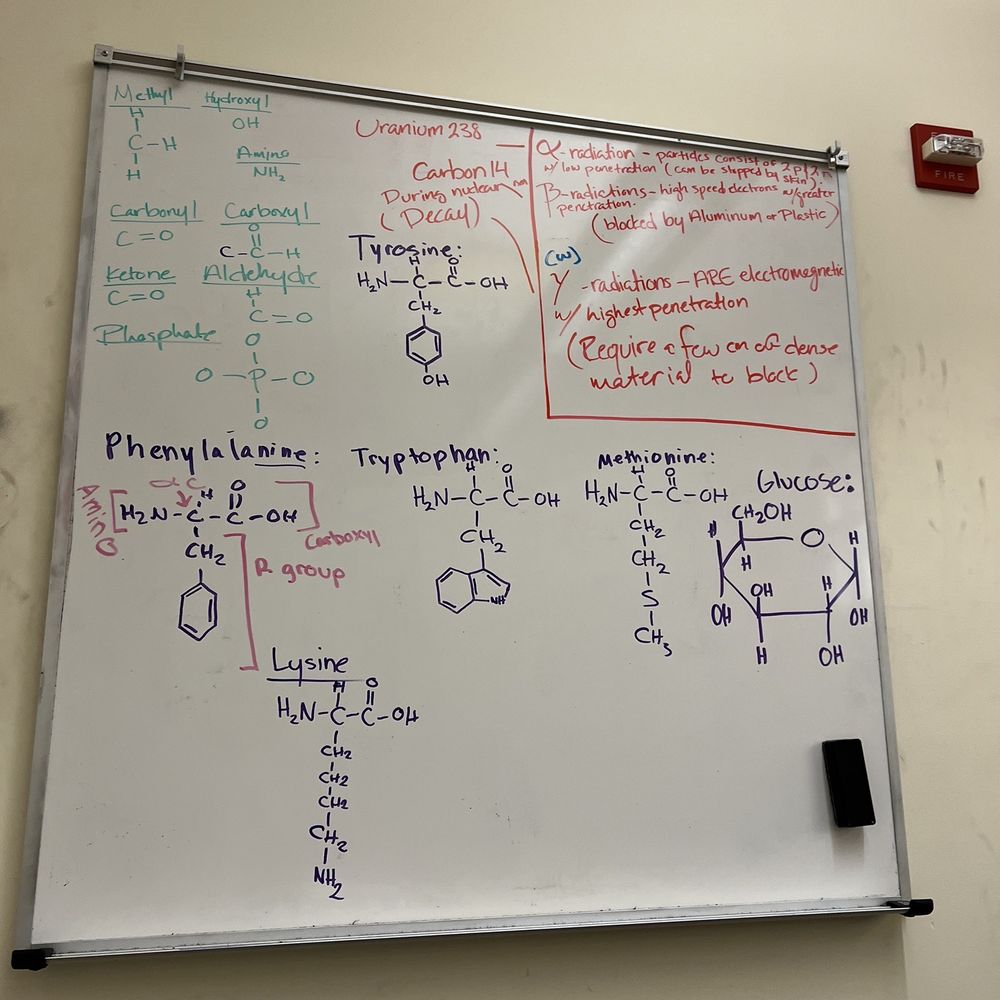 Methyl Hydroxyl
H OH
C-H
H
Amino
NH2
Carbonyl Carboxyl
C=O O
C-C-H
Ketone Aldehyde
C=O H
C=O
Phosphate O
O-P-O
O
Uranium 238
Carbon 14
During nuclear
(Decay)
α-radiation - particles consist of 2p/2n
w/ low penetration (can be stopped by skin).
β-radictions - high speed electrons w/greater
penctration.
(blocked by Aluminum or Plastic)
(w)
γ -radiations - ARE electromagnetic
w/ highest penetration
(Require a few cm of dense
material to block)
Tyrosine:
H O
H2N-C-C-OH
CH2
OH
Phenylalanine:
α C
H O
Amino
H2N-C-C-OH
Carboxyl
CH2
R group
Tryptophan:
H O
H2N-C-C-OH
CH2
NH
Methionine:
H O
H2N-C-C-OH
CH2
CH2
S
CH3
Glucose:
CH2OH
H O H
H
OH H
OH OH
H OH
Lysine
H O
H2N-C-C-OH
CH2
CH2
CH2
CH2
NH2
FIRE